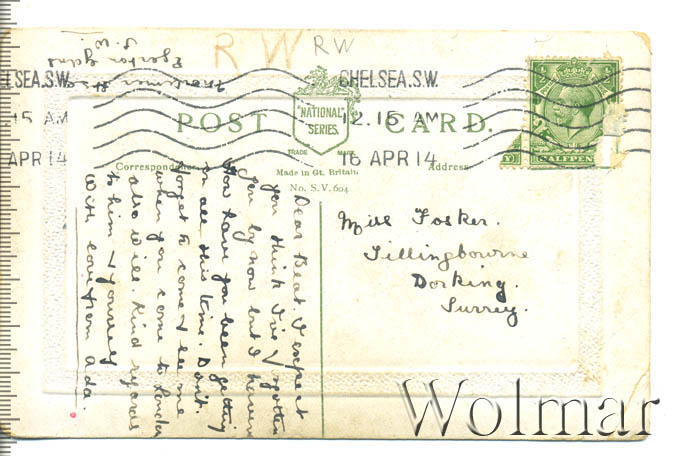 RW RW
S.W.
Egerton Gdns
CHELSEA.S.W. CHELSEA.S.W.
12.15 AM 12.15 AM
16 APR 14 16 APR 14
POST CARD.
"NATIONAL"
SERIES.
TRADE MARK
HALFPENNY
Correspondence Address
Made in Gt. Britain
No. S.V. 604
Dear Beat. I expect
you think I've forgotten
you by now but I haven't
How have you been getting
on all this time. Don't
forget to come & see me
when you come to London
also will kind regards
to him & yourself
with love from Ada.
Miss Fosker.
Tillingbourne
Dorking.
Surrey.
Wolmar